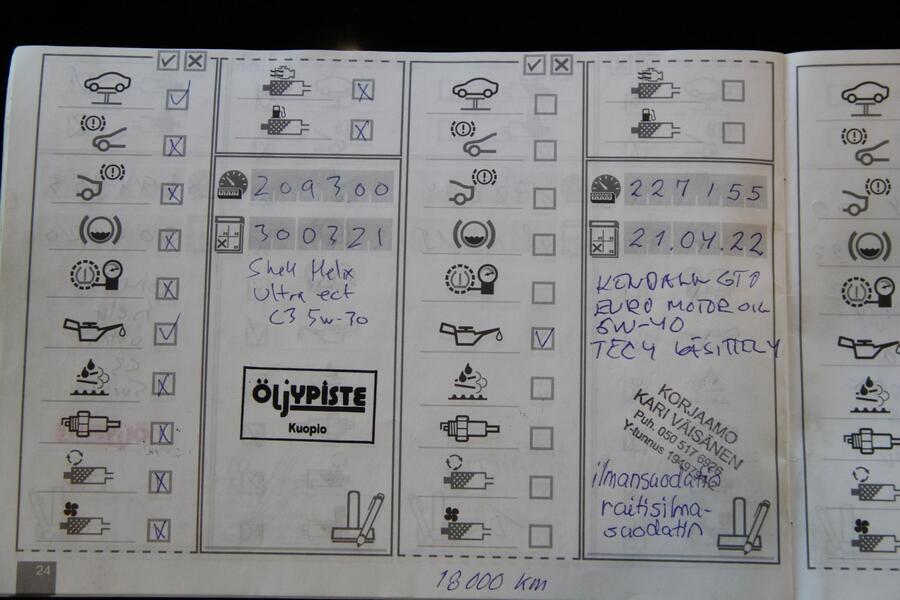 209300
300321
Shell Helix
Ultra ect
C3 5w-30
ÖLJYPISTE
Kuopio
227155
21.04.22
KENDALL GT1
EURO MOTOR OIL
5W-40
TEC4 KÄSITTELY
KORJAAMO
KARI VÄISÄNEN
Puh. 050 517 6926
Y-tunnus
ilmansuodatin
raitisilma-
suodatin
24
18000 km